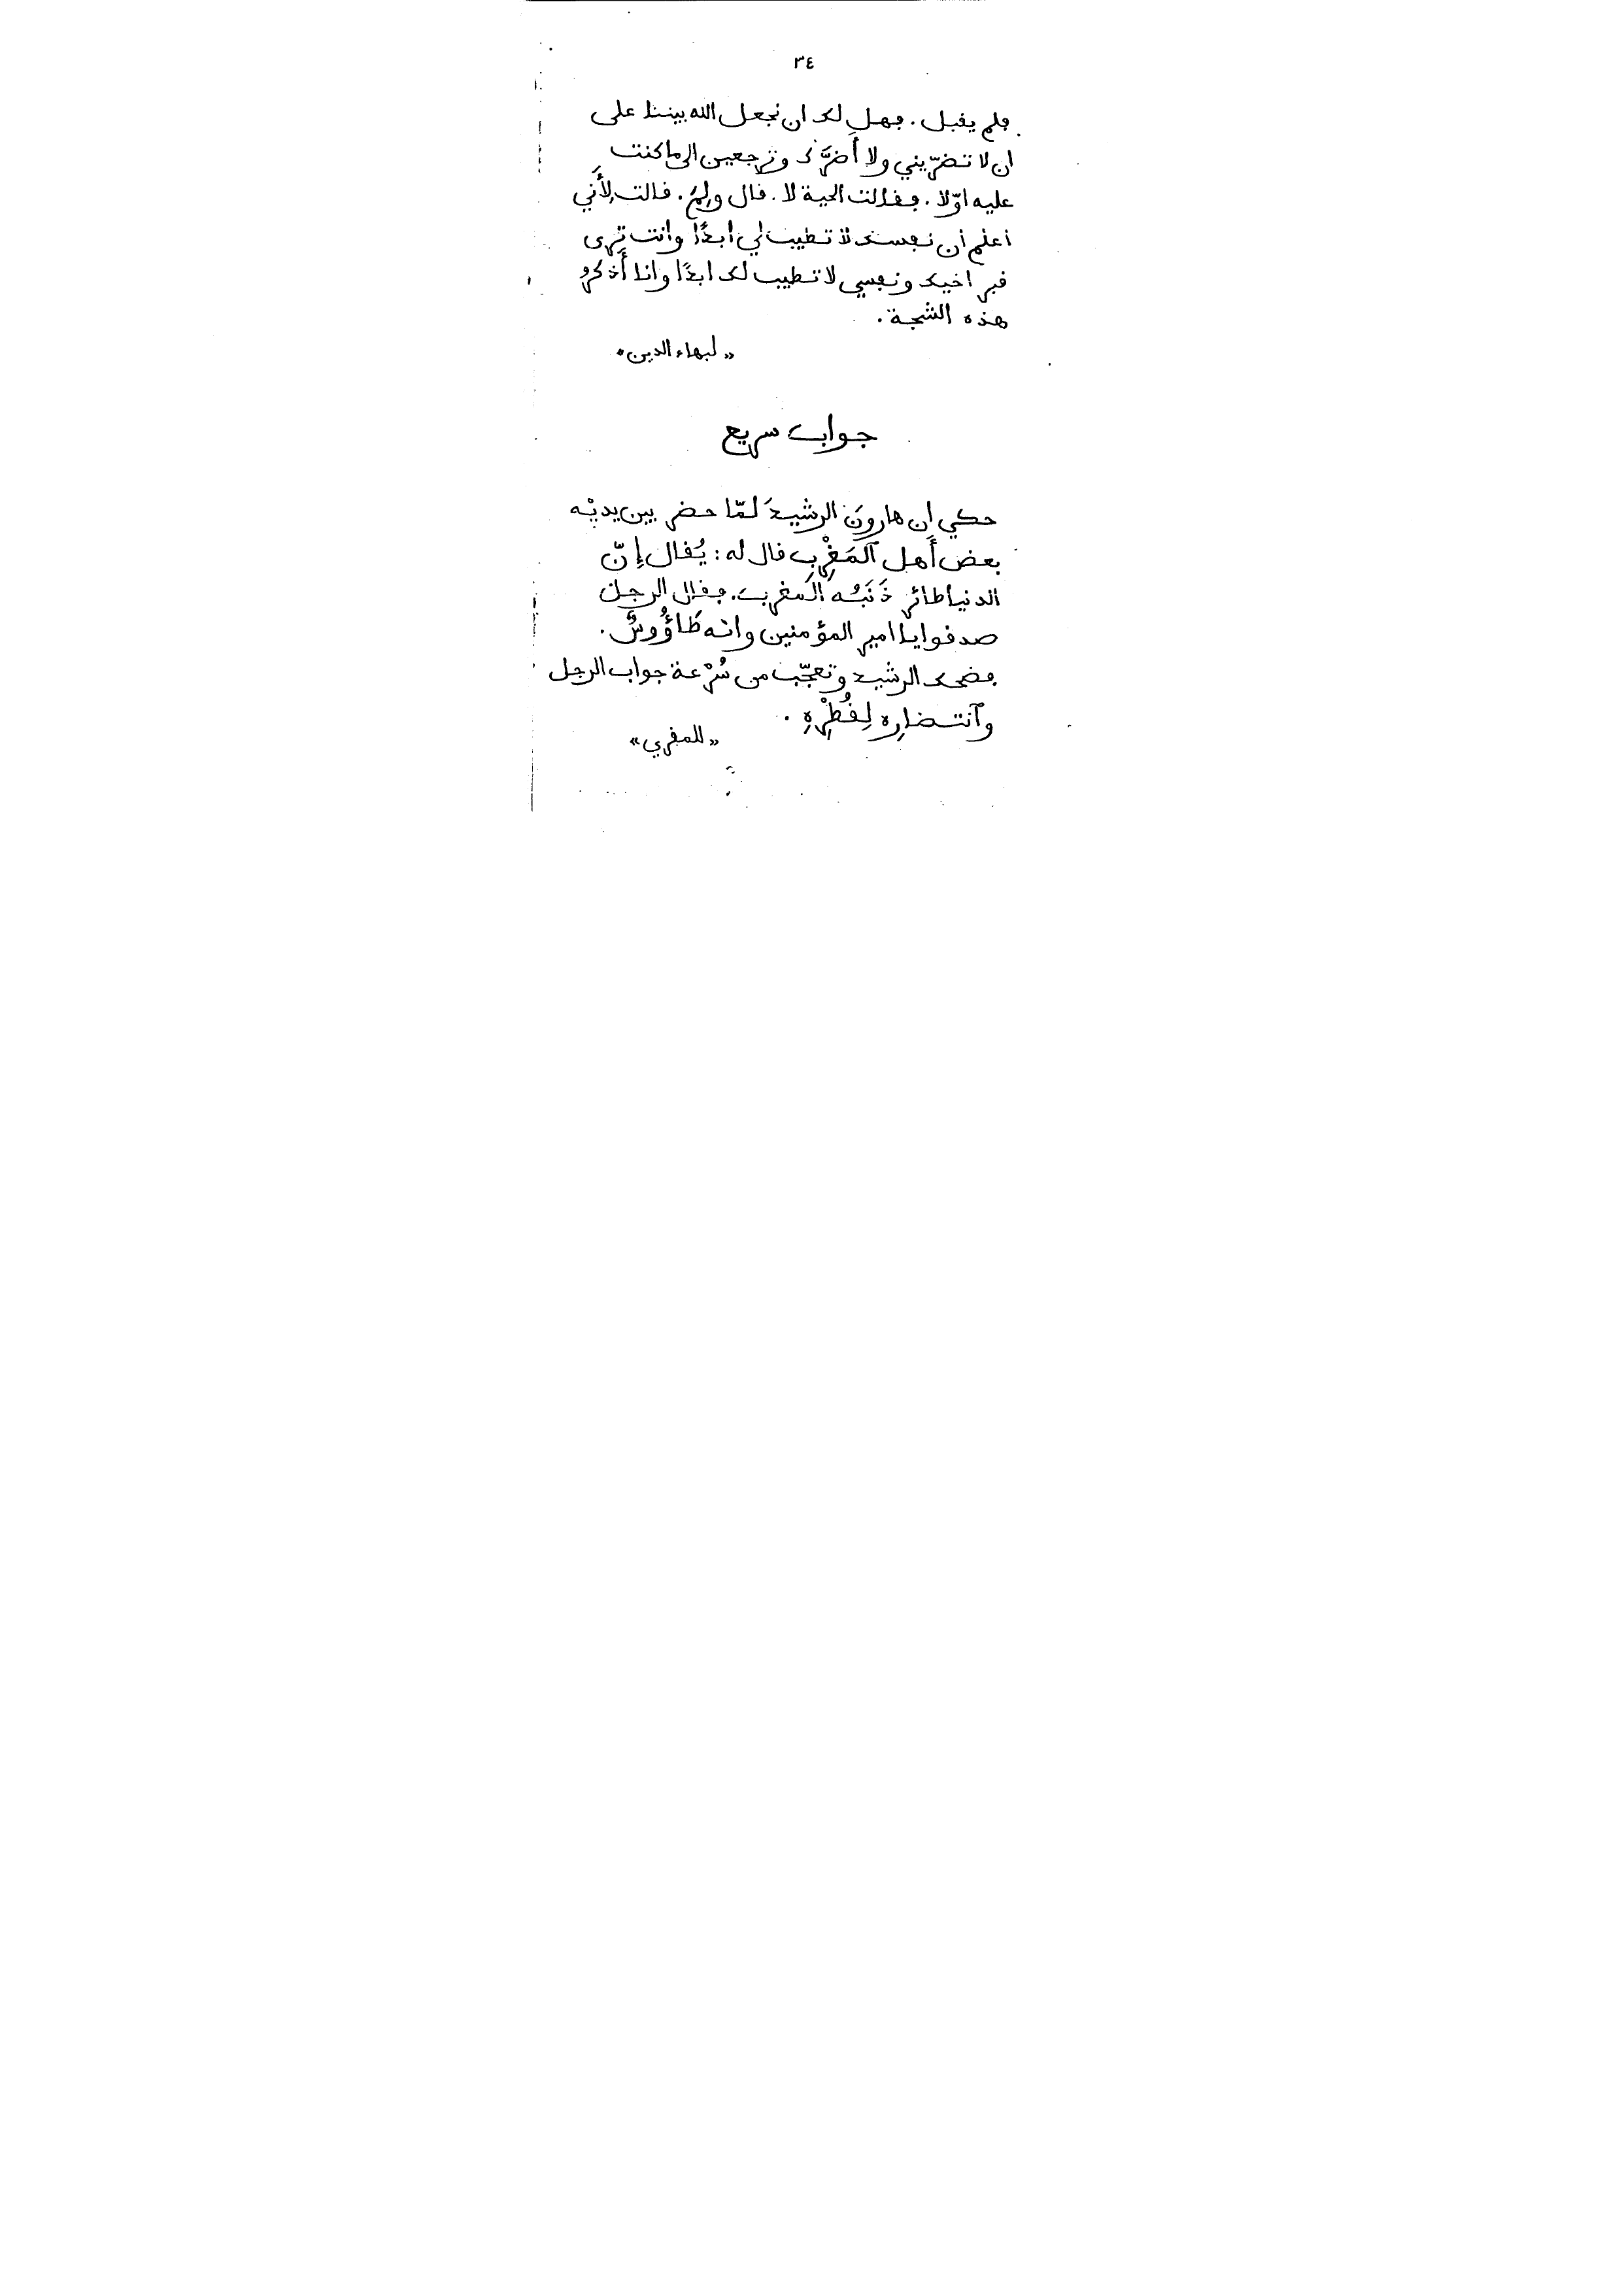 ٣٤
فلم يقبل . فهل لك ان نجعل الله بيننا على
ان لا تضرّيني ولا أضرَّك وترجعين الى ما كنت
عليه اوّلا . فقالت الحية لا . قال ولِمَ . قالت لِأَني
اعلم ان نفسك لا تطيب لي ابدًا وانت ترى
قبر اخيك ونفسي لا تطيب لك ابدًا وانا أَذكر
هذه الشجة .
« لبهاء الدين »
جواب سريع
حكي ان هارونَ الرشيدَ لمّا حضر بين يديْه
بعض أَهل ٱلمَغْرِب قال له : يُقال إِنّ
الدنيا طائر ذَنَبُه ٱلمغرب . فقال الرجل
صدقوا يا امير المؤمنين وانه طَاؤُوسٌ .
فضحك الرشيد وتعجّب من سُرْعة جواب الرجل
وٱنتضارِه لِقُطْرِهِ .
« للمقري »